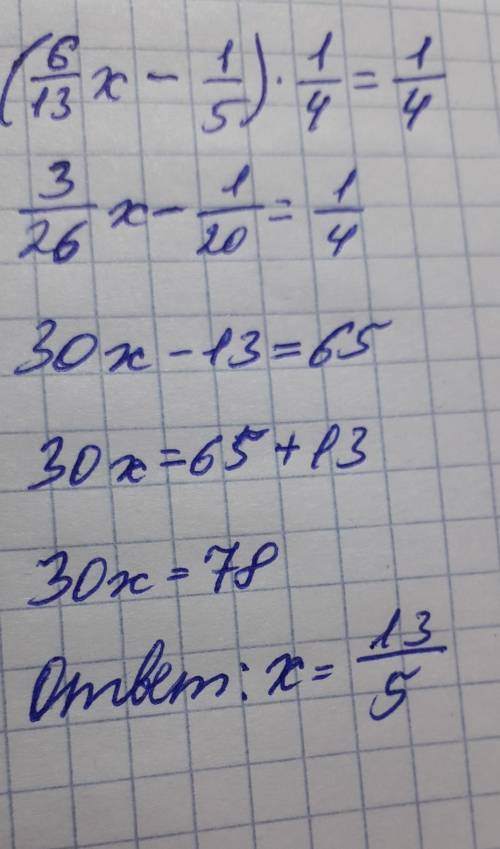 (6/13 x - 1/5) · 1/4 = 1/4
3/26 x - 1/20 = 1/4
30x - 13 = 65
30x = 65 + 13
30x = 78
Ответ: x = 13/5